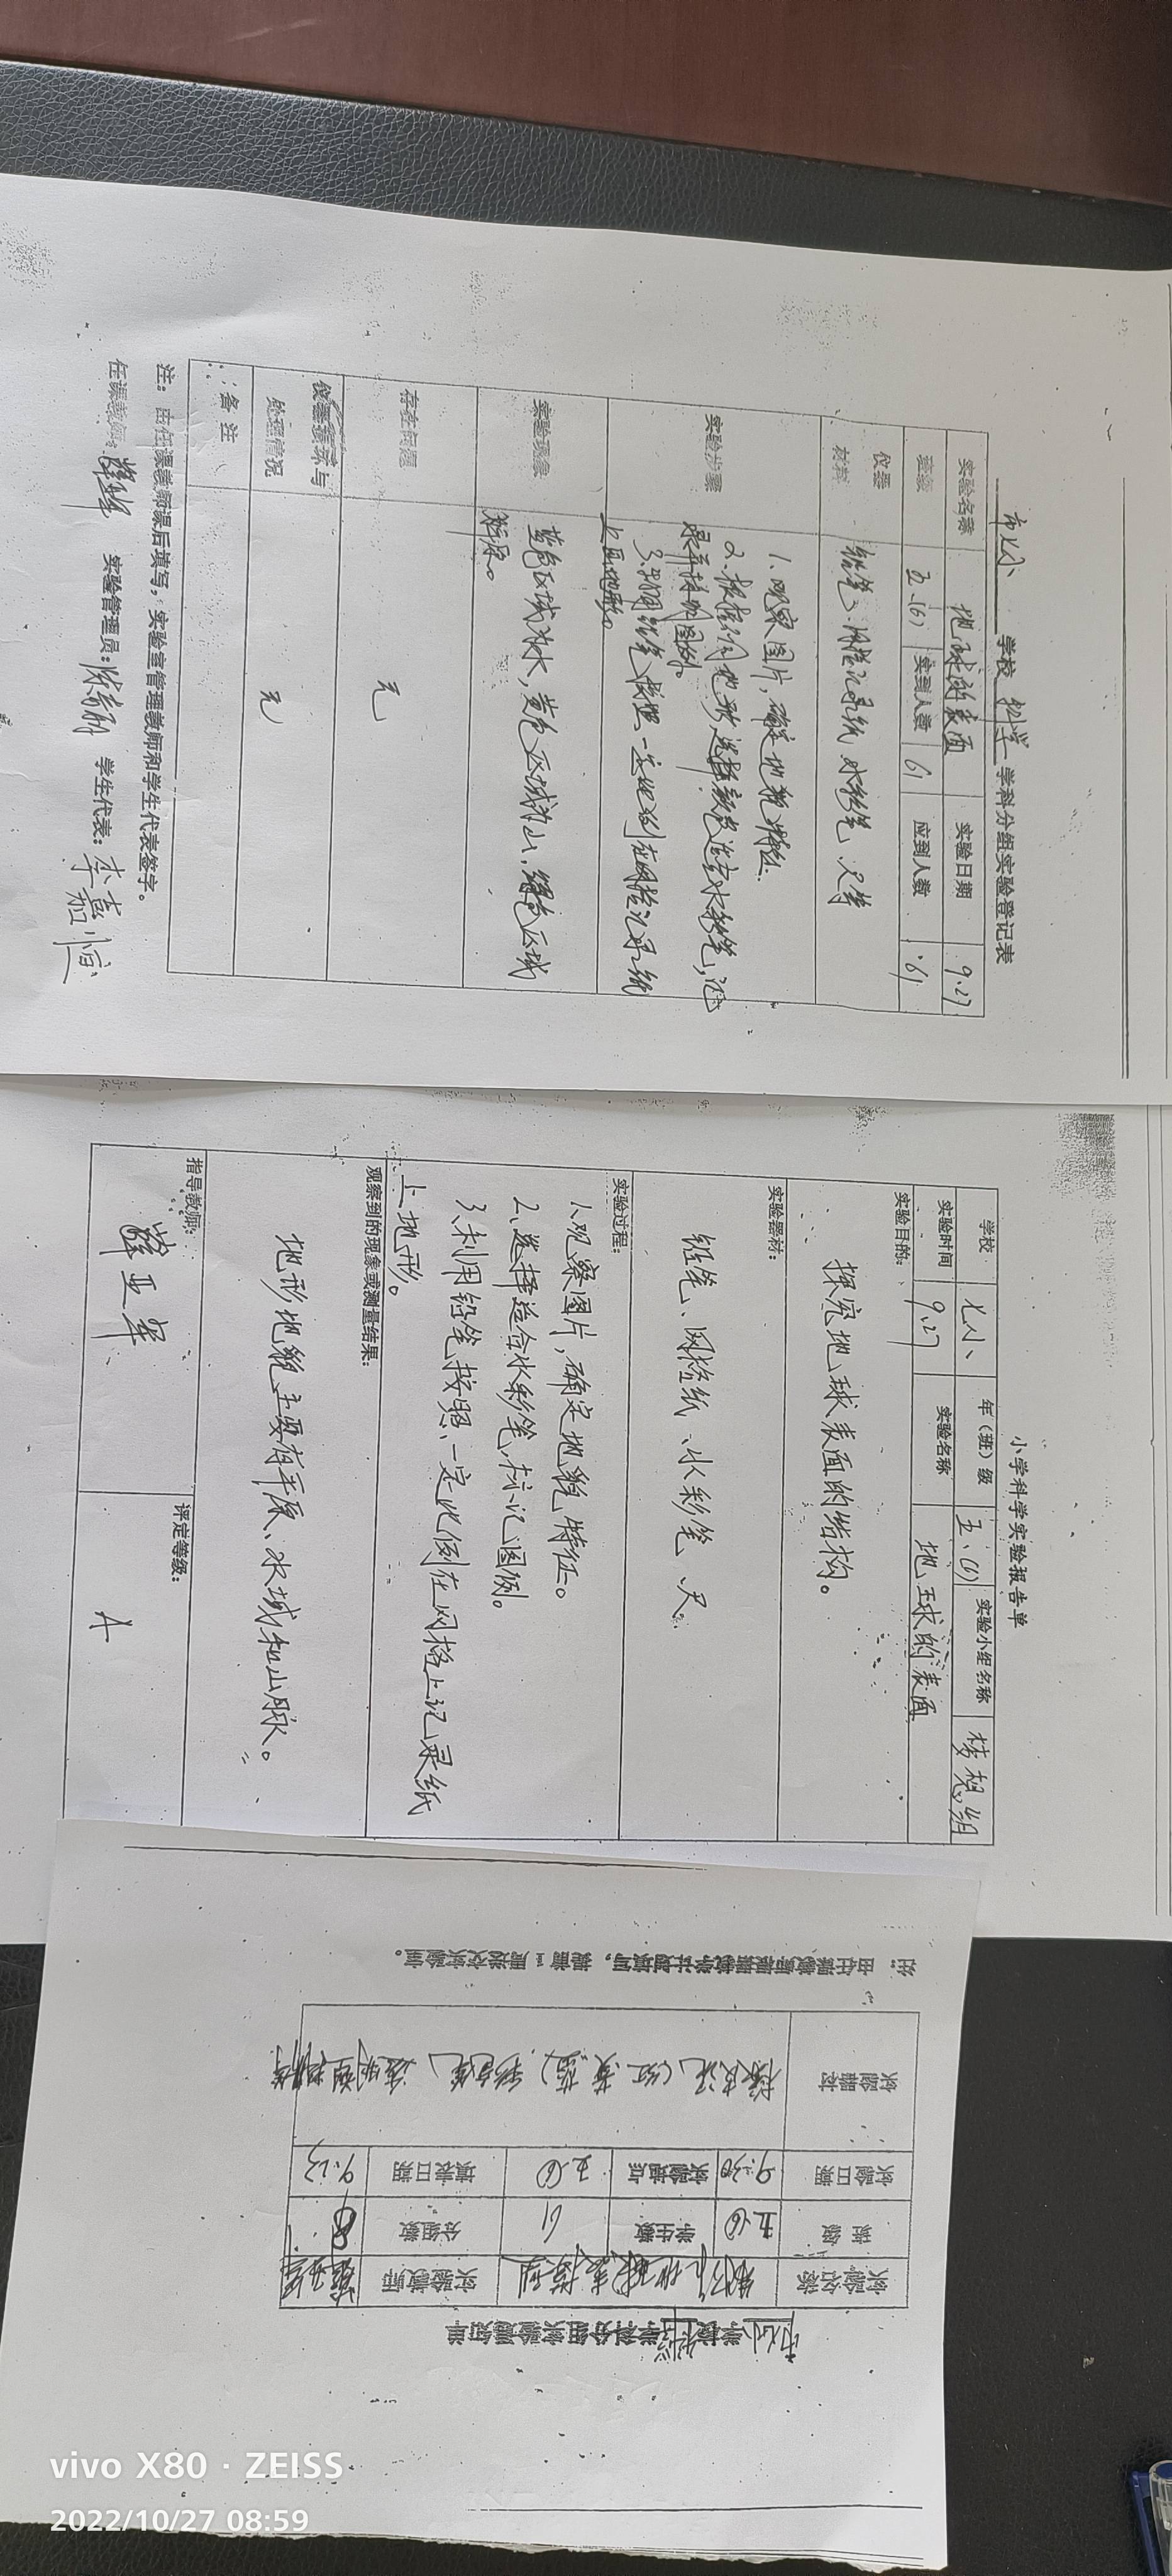 市七小 学校 科学 学科分组实验登记表
实验名称 地球的表面 实验日期 9.27
班级 五(6) 实到人数 61 应到人数 61
仪器材料 铅笔、网格记录纸 水彩笔 尺等
实验步骤
1.观察图片,确定地貌特征.
2.根据不同地形,选择颜色适宜水彩笔,记
录并持明图例。
3.利用铅笔按照一定比例在网格记录纸
上画地形。
实验现象
蓝色区域为水,黄色区域为山,绿色区域
为平原。
存在问题 无
仪器损坏与处理情况 无
备注
注:由任课教师课后填写,实验室管理教师和学生代表签字。
任课教师: 实验管理员: 学生代表:
小学科学实验报告单
学校 七小 年(班)级 五.(6) 实验小组名称 梦想组
实验时间 9.27 实验名称 地球的表面
实验目的:
探究地球表面的结构。
实验器材:
铅笔、网格纸、水彩笔、尺。
实验过程:
1、观察图片,确定地貌特征。
2、选择适合水彩笔,标记图例。
3、利用铅笔按照一定比例在网格上记录纸
上地形。
观察到的现象或测量结果:
地形地貌主要有平原、水域和山脉。
指导教师: 薛亚军 评定等级: A
市七小 学校 科学 学科分组实验通知单
实验名称 制作地球表模型 实验教师
班级 五⑥ 学生数 61 分组数 8
实验日期 9.30 实验地点 五⑥ 填表日期 9.23
实验器材 橡皮泥(红 黄 蓝)、彩色笔、透明塑料
注:由任课教师根据教学计划填写,提前1周送交实验室。
vivo X80 · ZEISS
2022/10/27 08:59